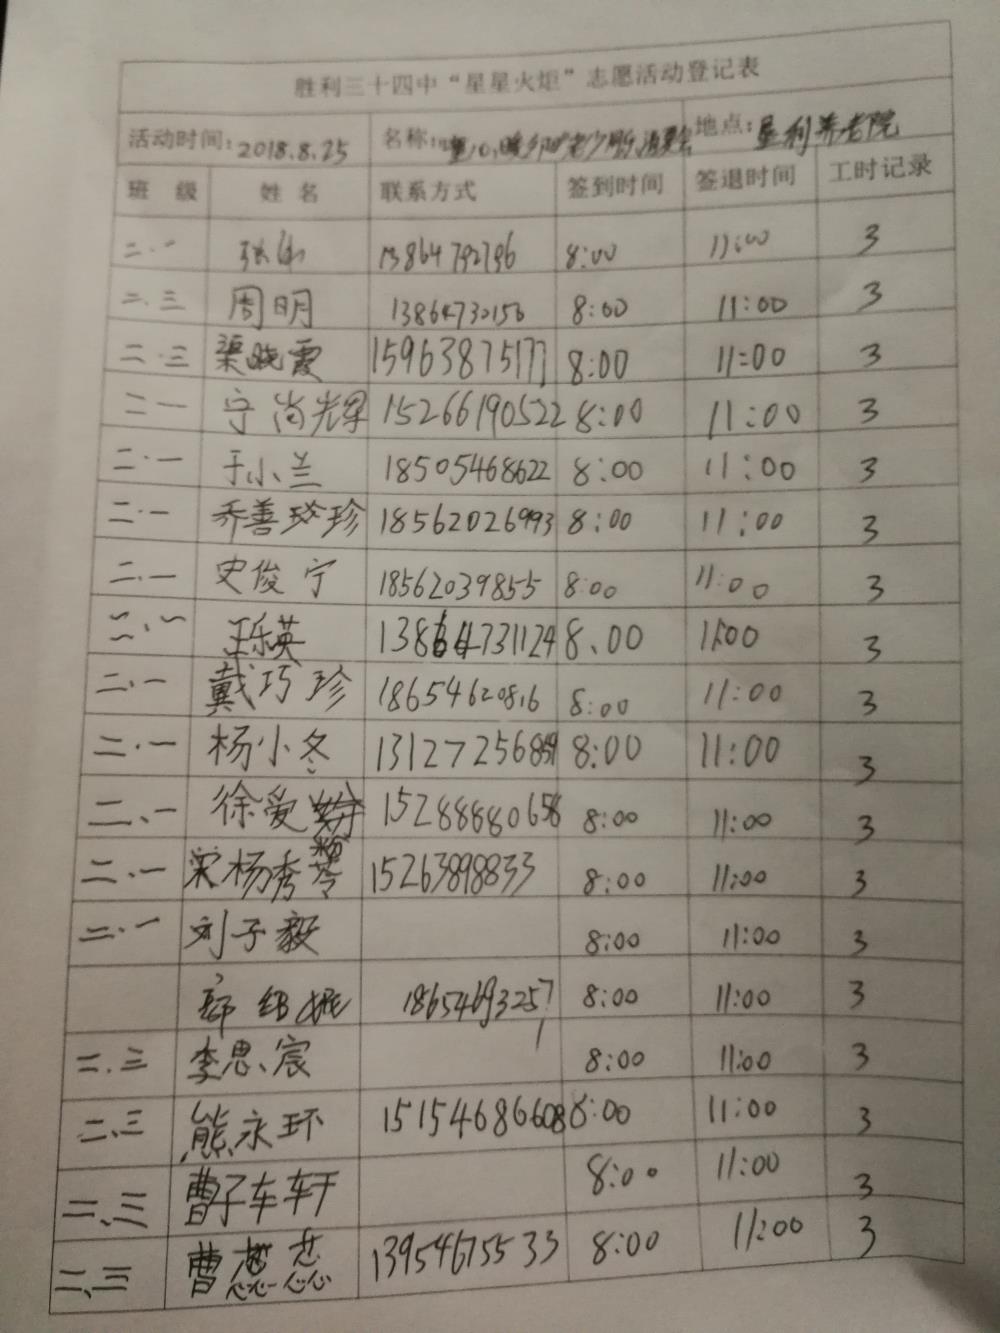 胜利三十四中“星星火炬”志愿活动登记表
活动时间:2018.8.25 名称: 地点:垦利养老院
班 级 姓 名 联系方式 签到时间 签退时间 工时记录
二.一 张 13864792796 8:00 11:00 3
二.三 周明 13864730150 8:00 11:00 3
二.三 渠晓霞 15963875177 8:00 11:00 3
二一 宁尚光军 15266190522 8:00 11:00 3
二.一 于小兰 18505468622 8:00 11:00 3
二.一 乔善珍 18562026993 8:00 11:00 3
二.一 史俊宁 18562039855 8:00 11:00 3
二.一 王乐英 13864731124 8.00 11:00 3
二.一 戴巧珍 18654620816 8:00 11:00 3
二.一 杨小冬 13127256859 8:00 11:00 3
二、一 徐爱 15288880658 8:00 11:00 3
二.一 杨秀苓 15263898833 8:00 11:00 3
二.一 刘子毅 8:00 11:00 3
绍振 18654693257 8:00 11:00 3
二.三 李思宸 8:00 11:00 3
二.三 熊永环 15154686608 8:00 11:00 3
二、三 曹子车轩 8:00 11:00 3
二、三 曹 13954675533 8:00 11:00 3